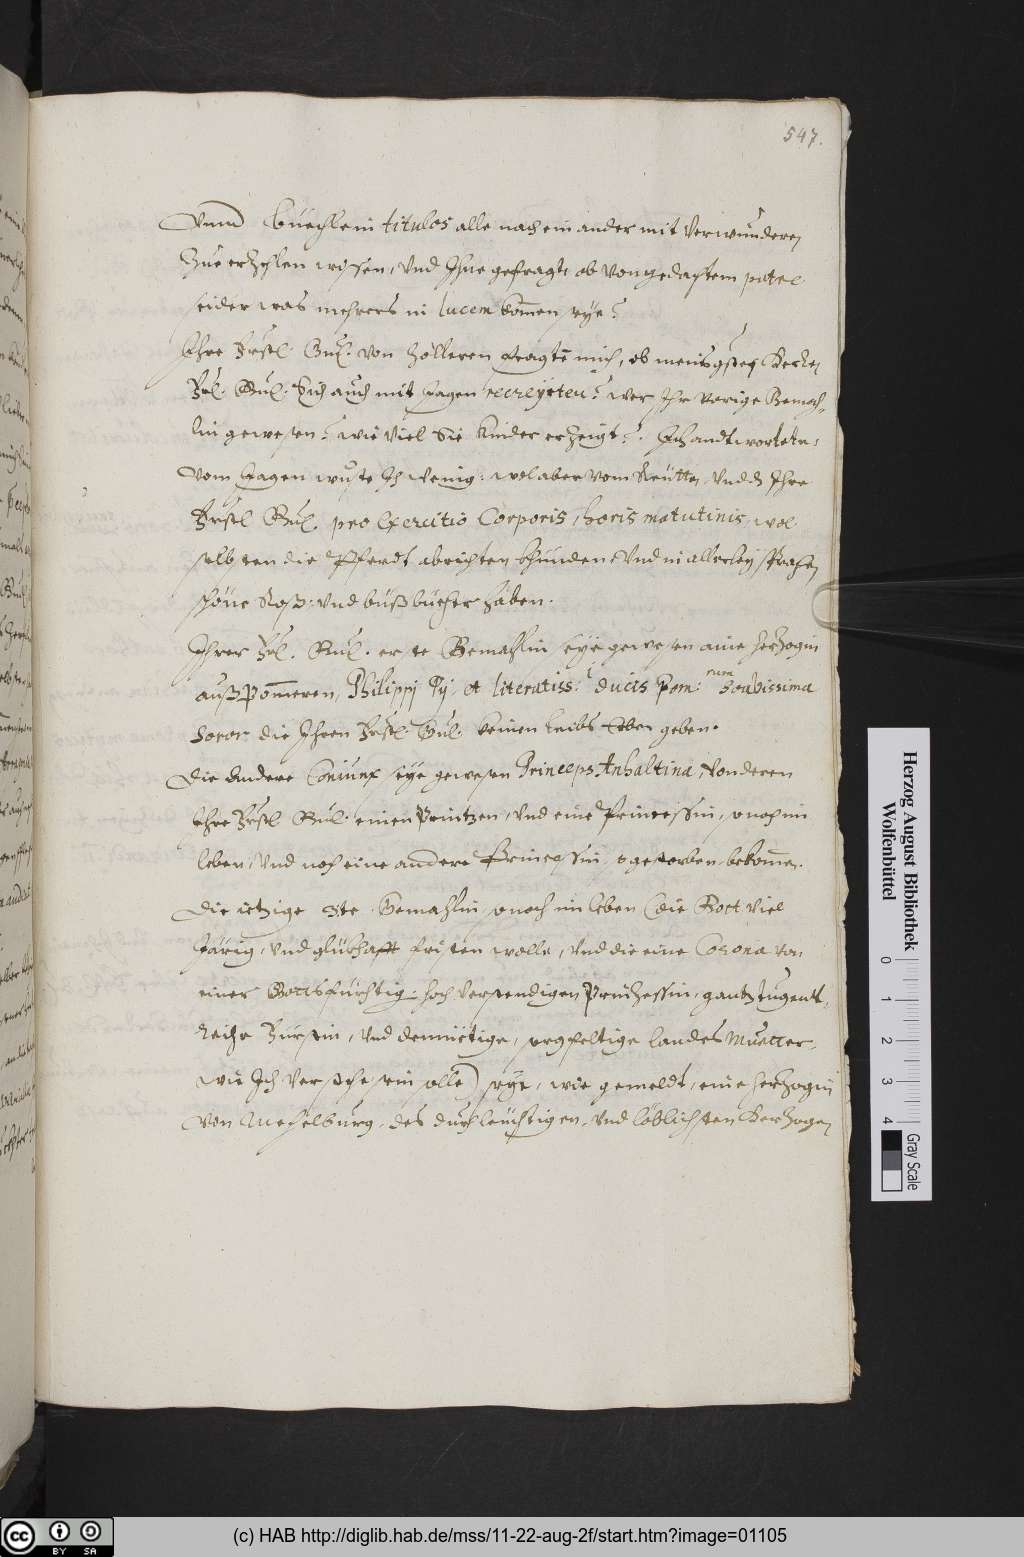 547.
Vnnd büechlein titulos alle nach ein ander mit Verwunderen
Zue erzehlen wissen, vnd Ihne gefragt ob von gedachtem patre
seider was mehrers in lucem komen seye?
Ihre Frstl. Gnl. von Zolleren fragte mich, ob meins gsten Herren
Frl. Gnl. Sich auch mit Jagen recreyrten? wer Ihr vorige Gemach-
lin gewesen? wie viel Sie Kinder erzeigt? Ich andtwortete:
Vom Jagen wuste Ich wenig: wol aber vom Reütten, vnd dz Ihre
Frstl Gnl. pro Exercitio Corporis, horis matutinis, wol
selbsten die Pferdt abrichten khunden, vnd in allerley sprachen
schöne Roß: vnd büßbüecher haben.
Ihrer Frl. Gnl. erste Gemahlin seye gewesen eine herzogin
auß Pomeren, Philippj Pij, et literatiss: ducis Pom: rum Soavissima
Soror, die Ihren Frstl. Gnl. keinen Leibs Erben geben.
Die Andere Coniunx seye gewesen Princeps Anhaltina, Von deren
Ihre Frstl Gnl. einen Printzen, vnd eine Princessin, so noch im
leben, vnd noch eine andere Princessin, so gestorben, bekomen.
Die ietzige 3te Gemahlin, so noch im leben (die Gott viel
Järig, vnd glückhafft fristen wolle, vnd die eine Corona von
einer Gottsfürchtig: hoch Verstendigen Princessin, gantz tugentt-
Reiche Fürstin, vnd demüetige, sorgfeltige landes Muetter,
wie Ich Verstehe, sein solle) seye, wie gemeldt, eine herzogin
von Mechelburg, des durchleüchtigen, vnd löblichsten Herzogen
Herzog August Bibliothek
Wolfenbüttel
0 1 2 3 4
Gray Scale
BY SA
(c) HAB http://diglib.hab.de/mss/11-22-aug-2f/start.htm?image=01105